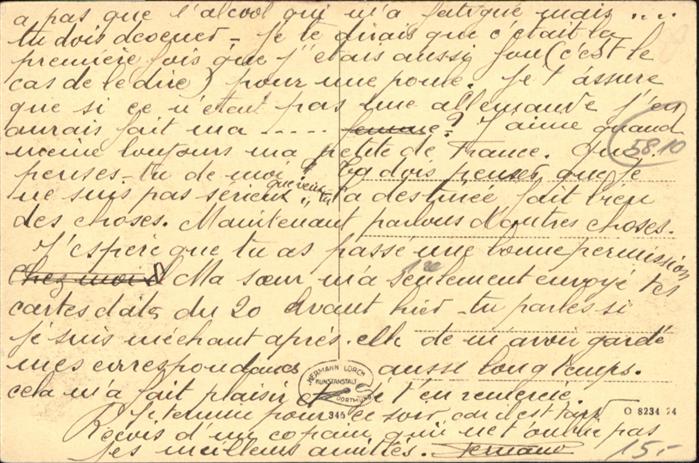 a pas que l'alcool qui m'a fatigué mais ....
tu dois deviner - Je te dirais que c'était la
première fois que j'étais aussi fou (c'est le
cas de le dire) pour une poule. Je t'assure
que si ce n'était pas une allemande j'en
aurais fait ma ..... femme? J'aime quand
même toujours ma petite de France. Que
penses-tu de moi? Tu dois penser que je
ne suis pas sérieux, que veux tu la destinée fait bien
des choses. Maintenant parlons d'autres choses.
J'espère que tu as passé une bonne permission
chez moi Ma sœur m'a seulement envoyé tes
cartes datées du 20 avant hier - tu parles si
je suis méchant après elle de m'avoir gardé
mes correspondances aussi longtemps.
cela m'a fait plaisir et t'en remercie.
Je termine pour ce soir car il est tard
Reçois d'un copain qui ne t'oublie pas
ses meilleurs amitiés. Fernand
5810
HERMANN LORCH
KUNSTANSTALT
DORTMUND
345
O 8234 24
15.-